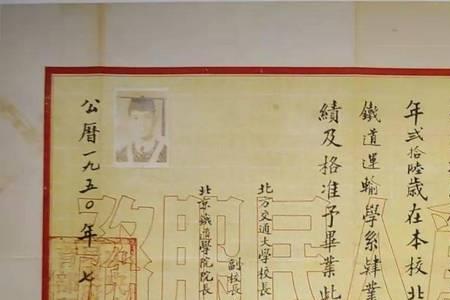 年貳拾陸歲在本校北
鐵道運輸學系肄業
績及格准予畢業此
北方交通大學校長
副校長
北京鐵道學院院長
公曆一九五〇年七